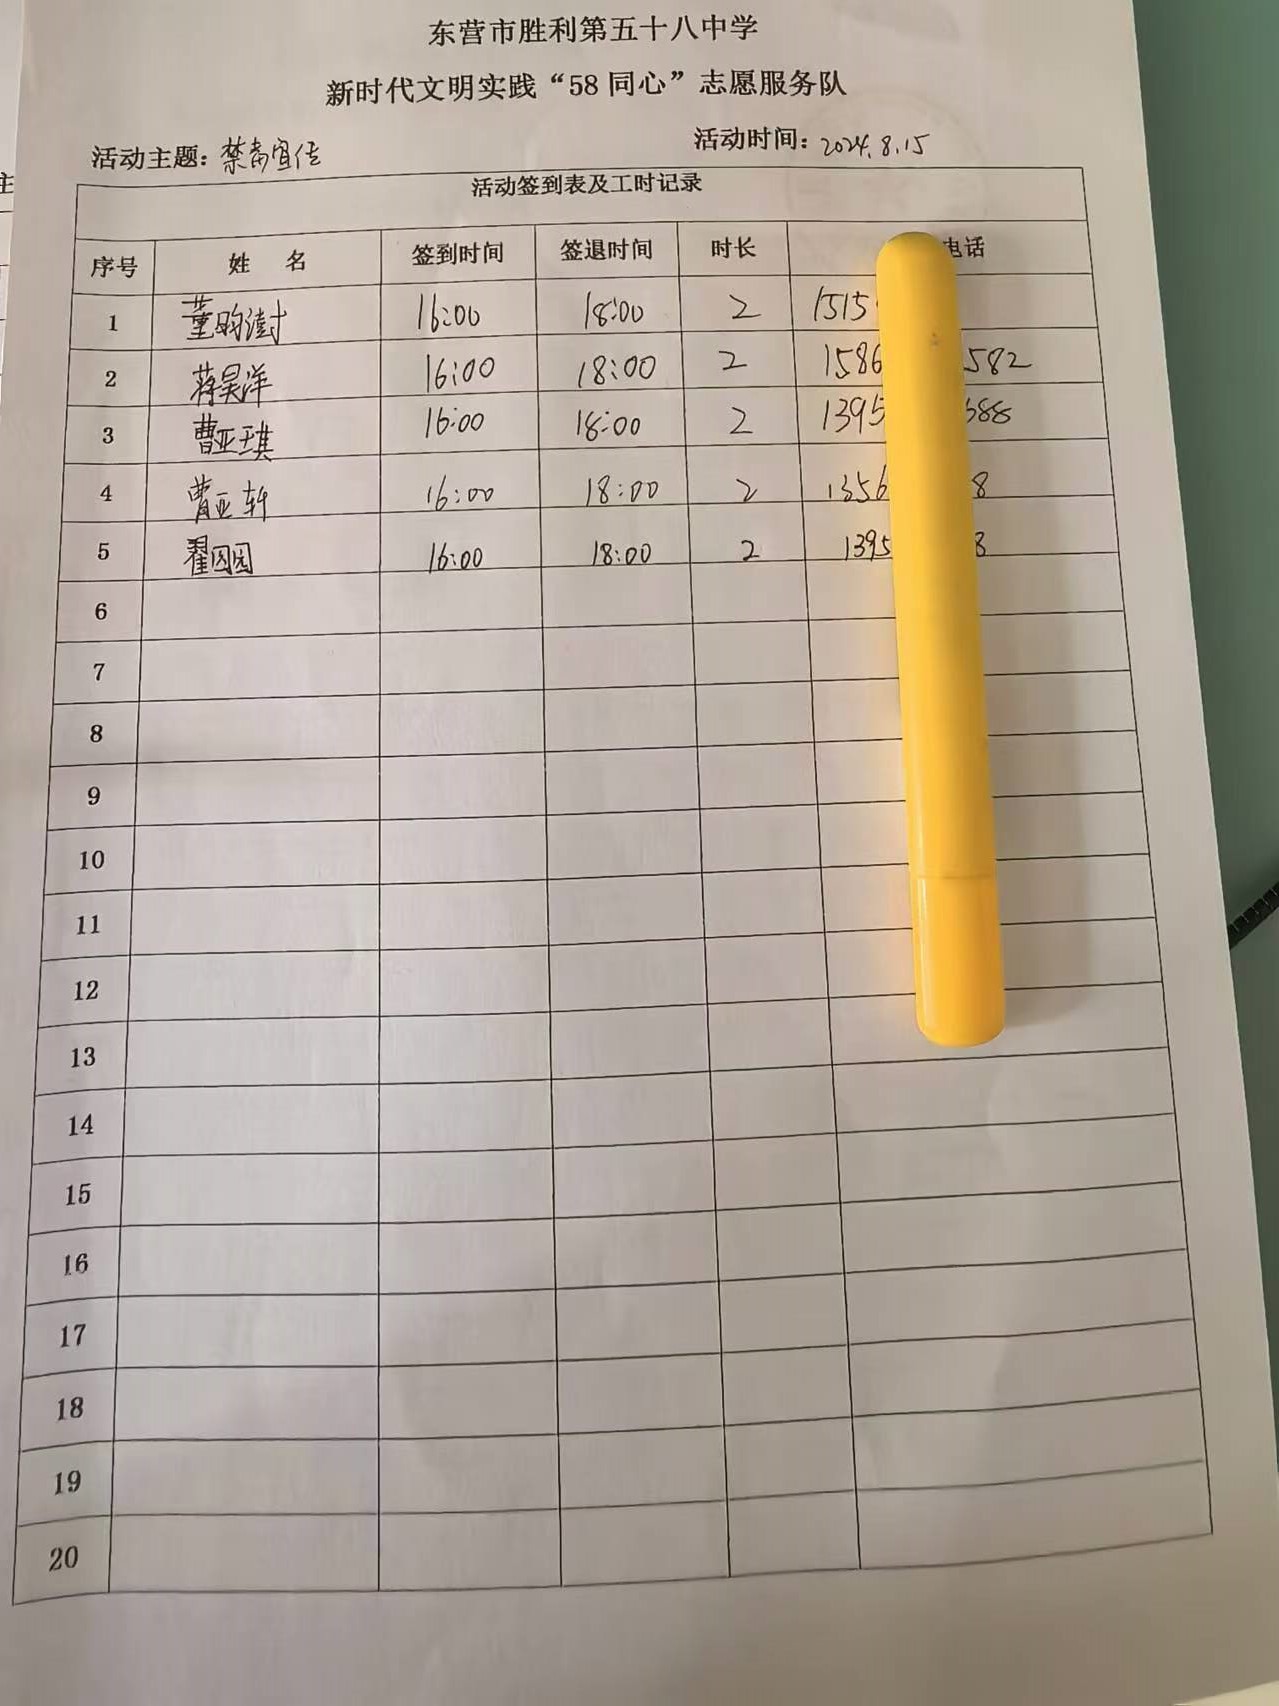 东营市胜利第五十八中学
新时代文明实践“58同心”志愿服务队
活动主题：禁毒宣传 活动时间：2024.8.15
活动签到表及工时记录
序号 姓 名 签到时间 签退时间 时长 电话
1 董昀澍 16:00 18:00 2 1515
2 蒋昊洋 16:00 18:00 2 1586 582
3 曹亚琪 16:00 18:00 2 1395 688
4 曹亚轩 16:00 18:00 2 1356 8
5 翟园 16:00 18:00 2 1395 8
6
7
8
9
10
11
12
13
14
15
16
17
18
19
20